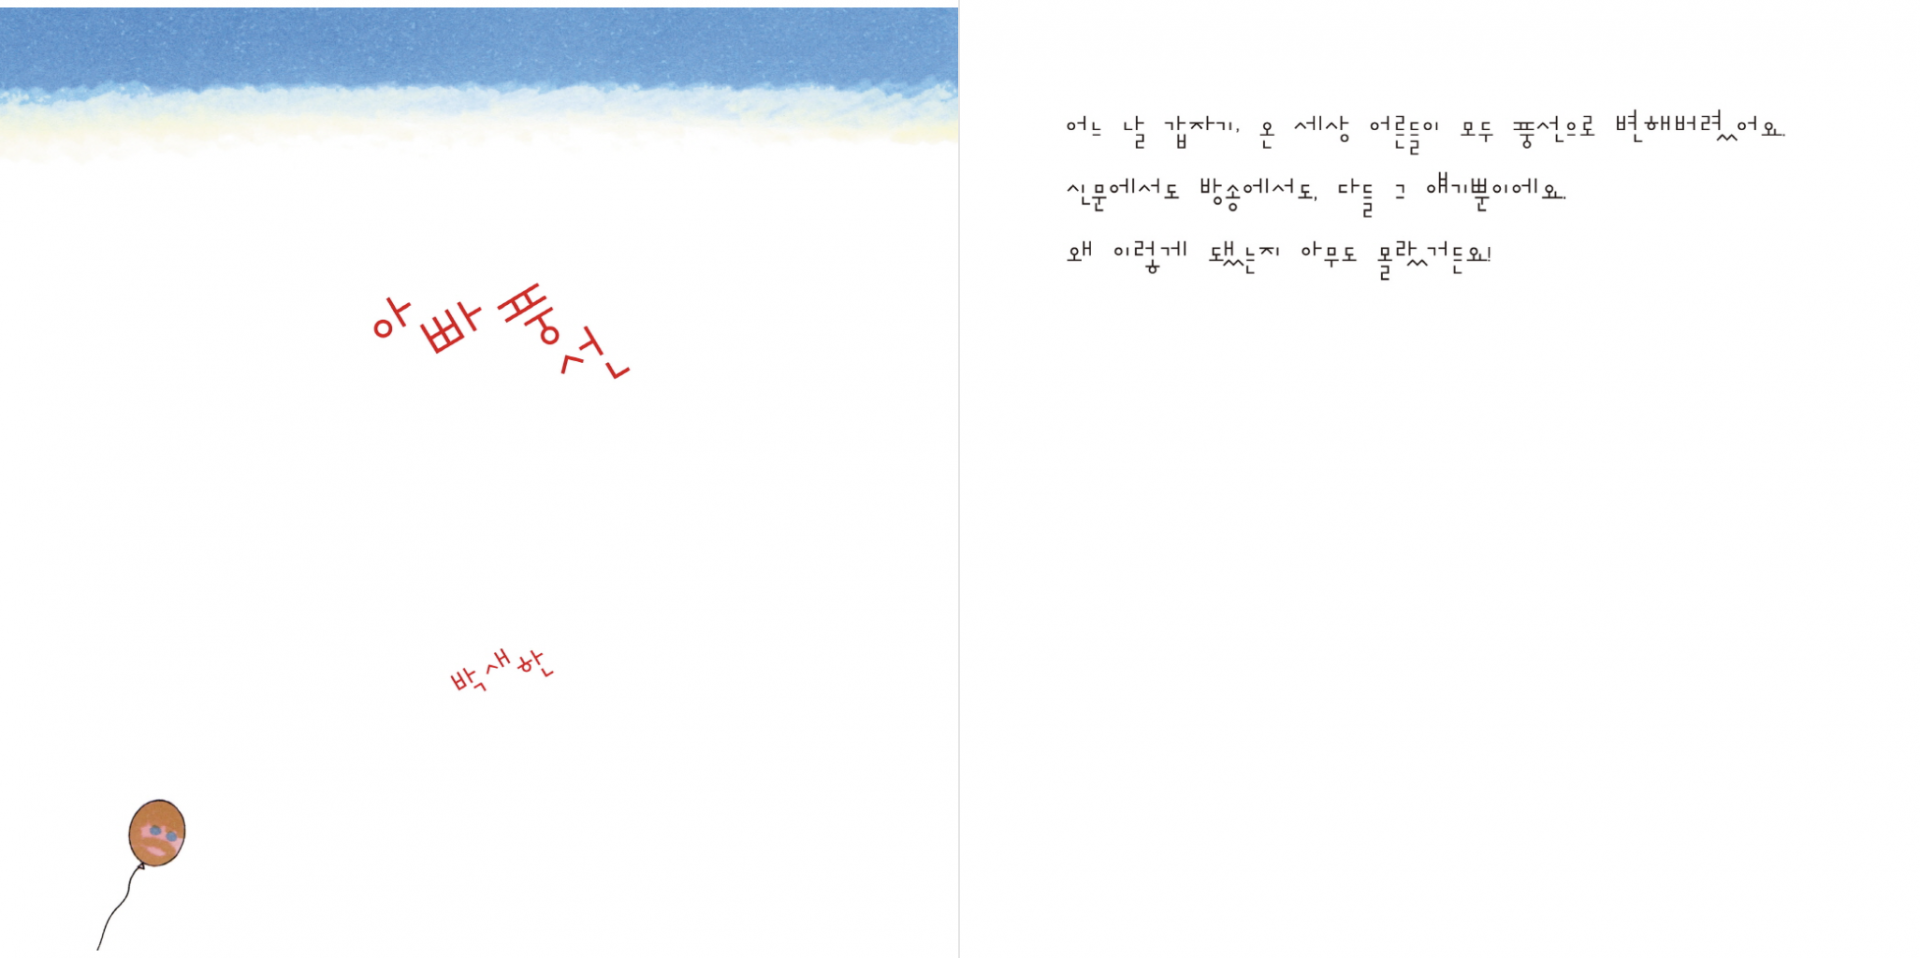 아빠 풍선
박새한
어느 날 갑자기, 온 세상 어른들이 모두 풍선으로 변해버렸어요.
신문에서도 방송에서도, 다들 그 얘기뿐이에요.
왜 이렇게 됐는지 아무도 몰랐거든요!